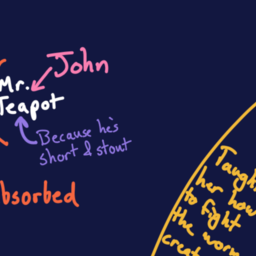 John
Mr.
Teapot
Because he's
short & stout
bsorbed
Taught
her how
to fight
the worm
creat